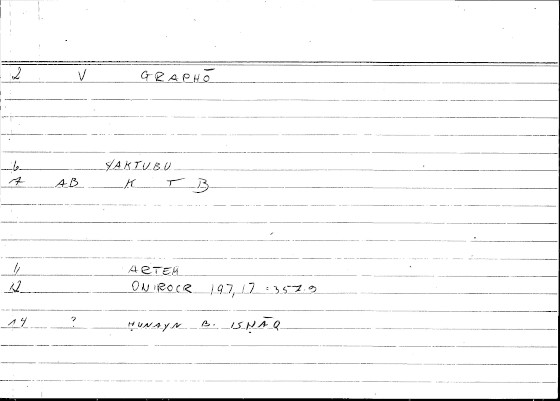 2 V GRAPHŌ
6 YAKTUBU
7 AB K T B
11 ARTEM
12 ONIROCR 197,17 : 357.9
14 ? ḤUNAYN B. ISḤĀQ